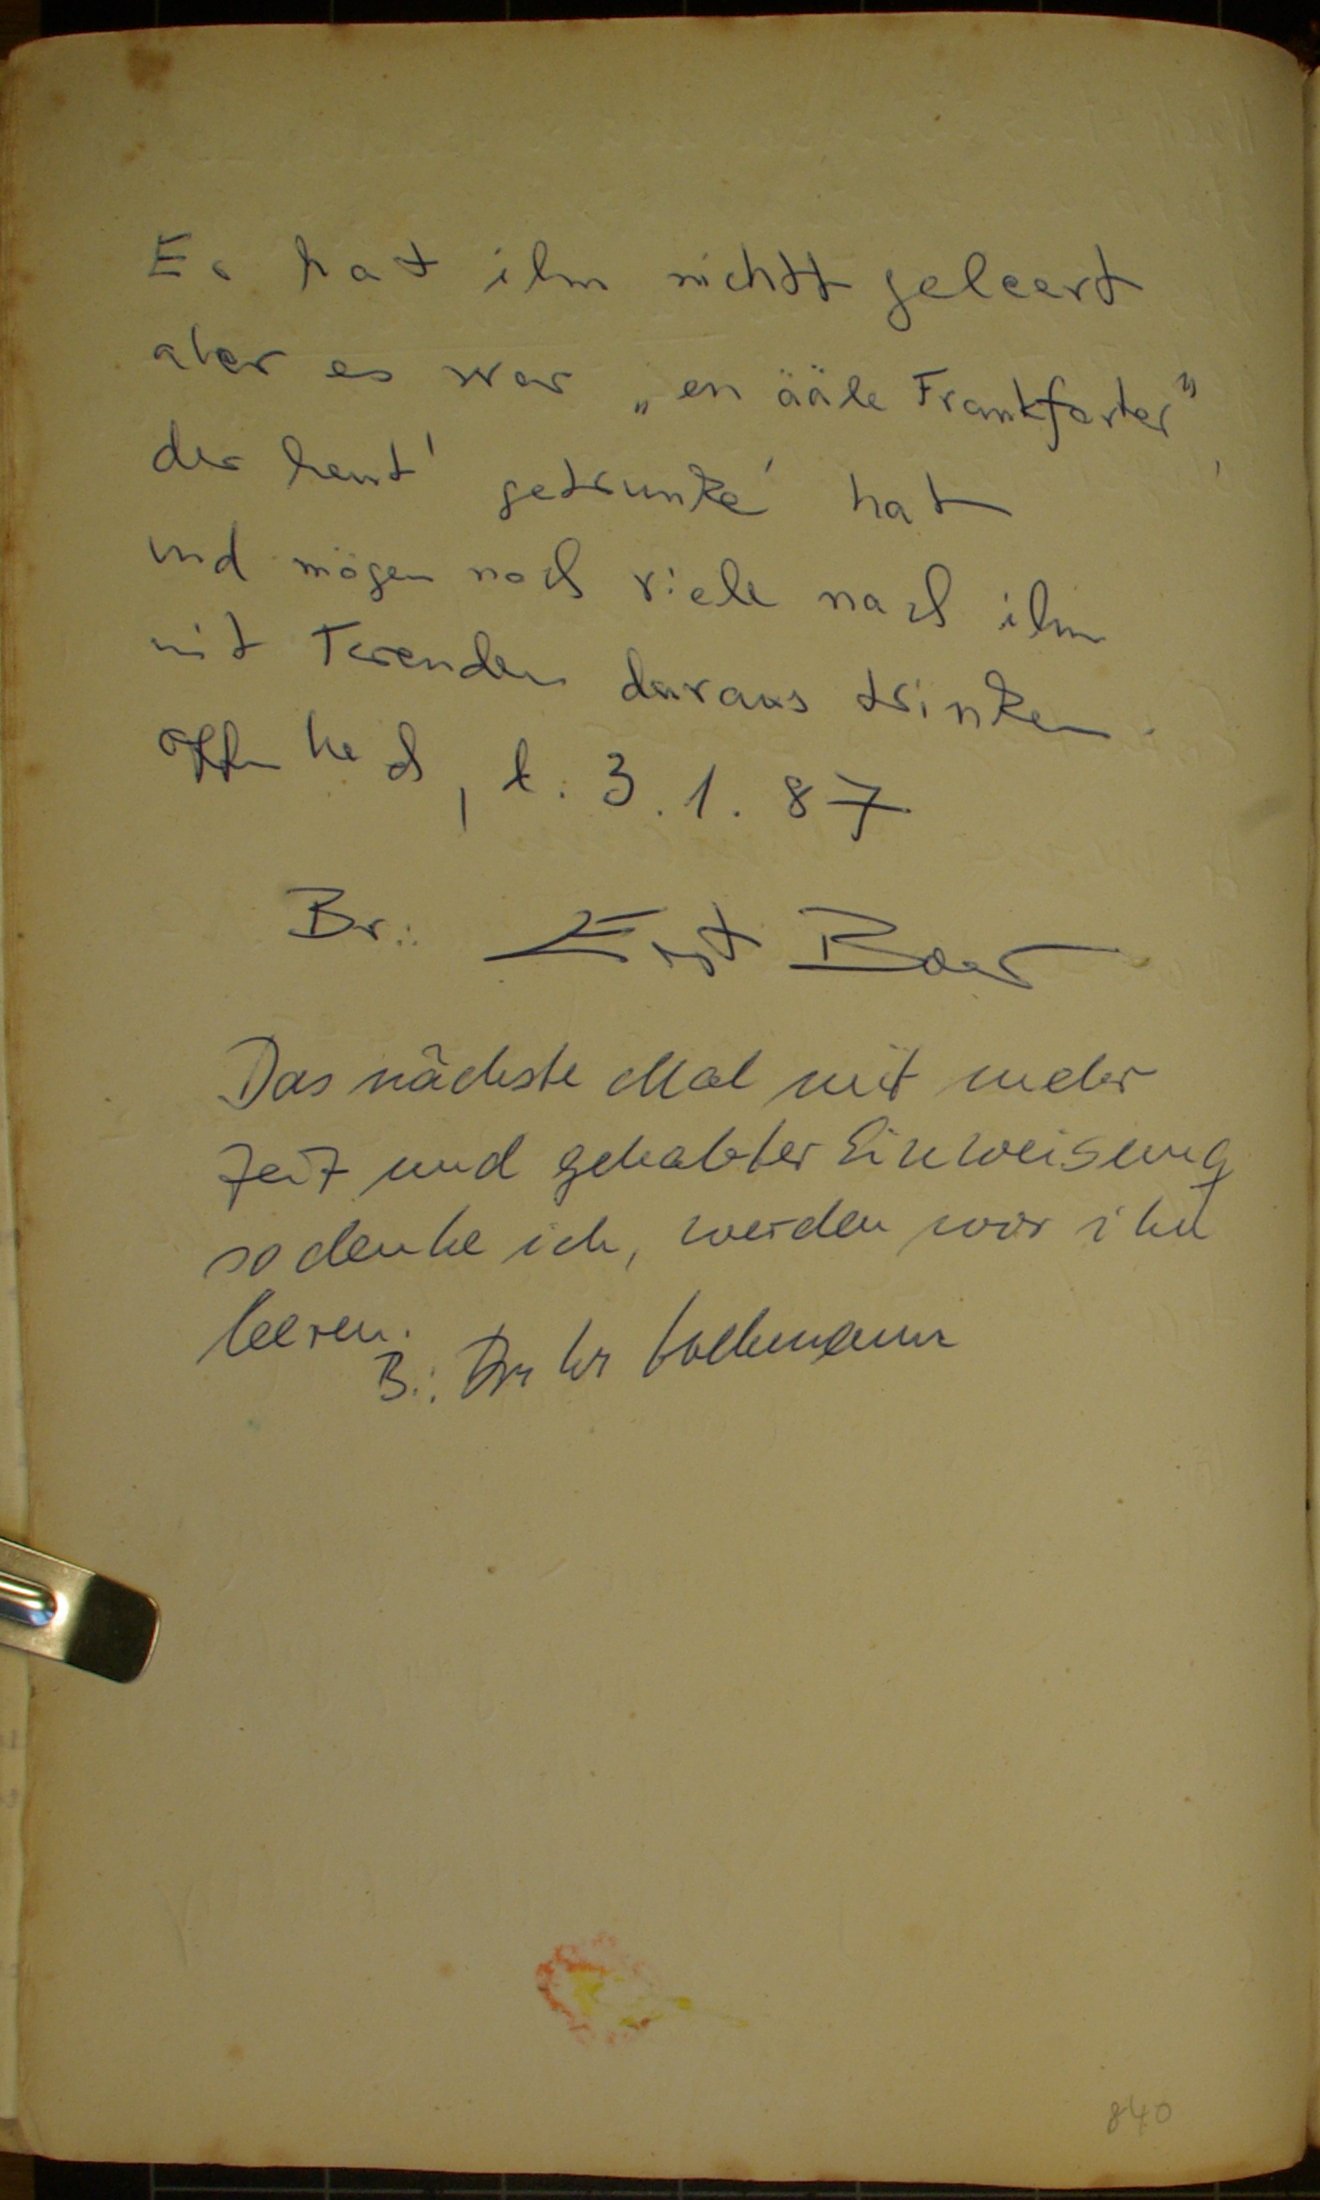 Er hat ihn nicht geleert
aber es war „en ääle Frankforter",
der heut' getrunke' hat
und mögen noch viele nach ihm
mit Freuden daraus trinken.
d. 3.1.87
Br.: Ernst Baer
Das nächste Mal mit mehr
Zeit und gehabter Einweisung
so denke ich, werden wir ihn
leeren.
B.:
840